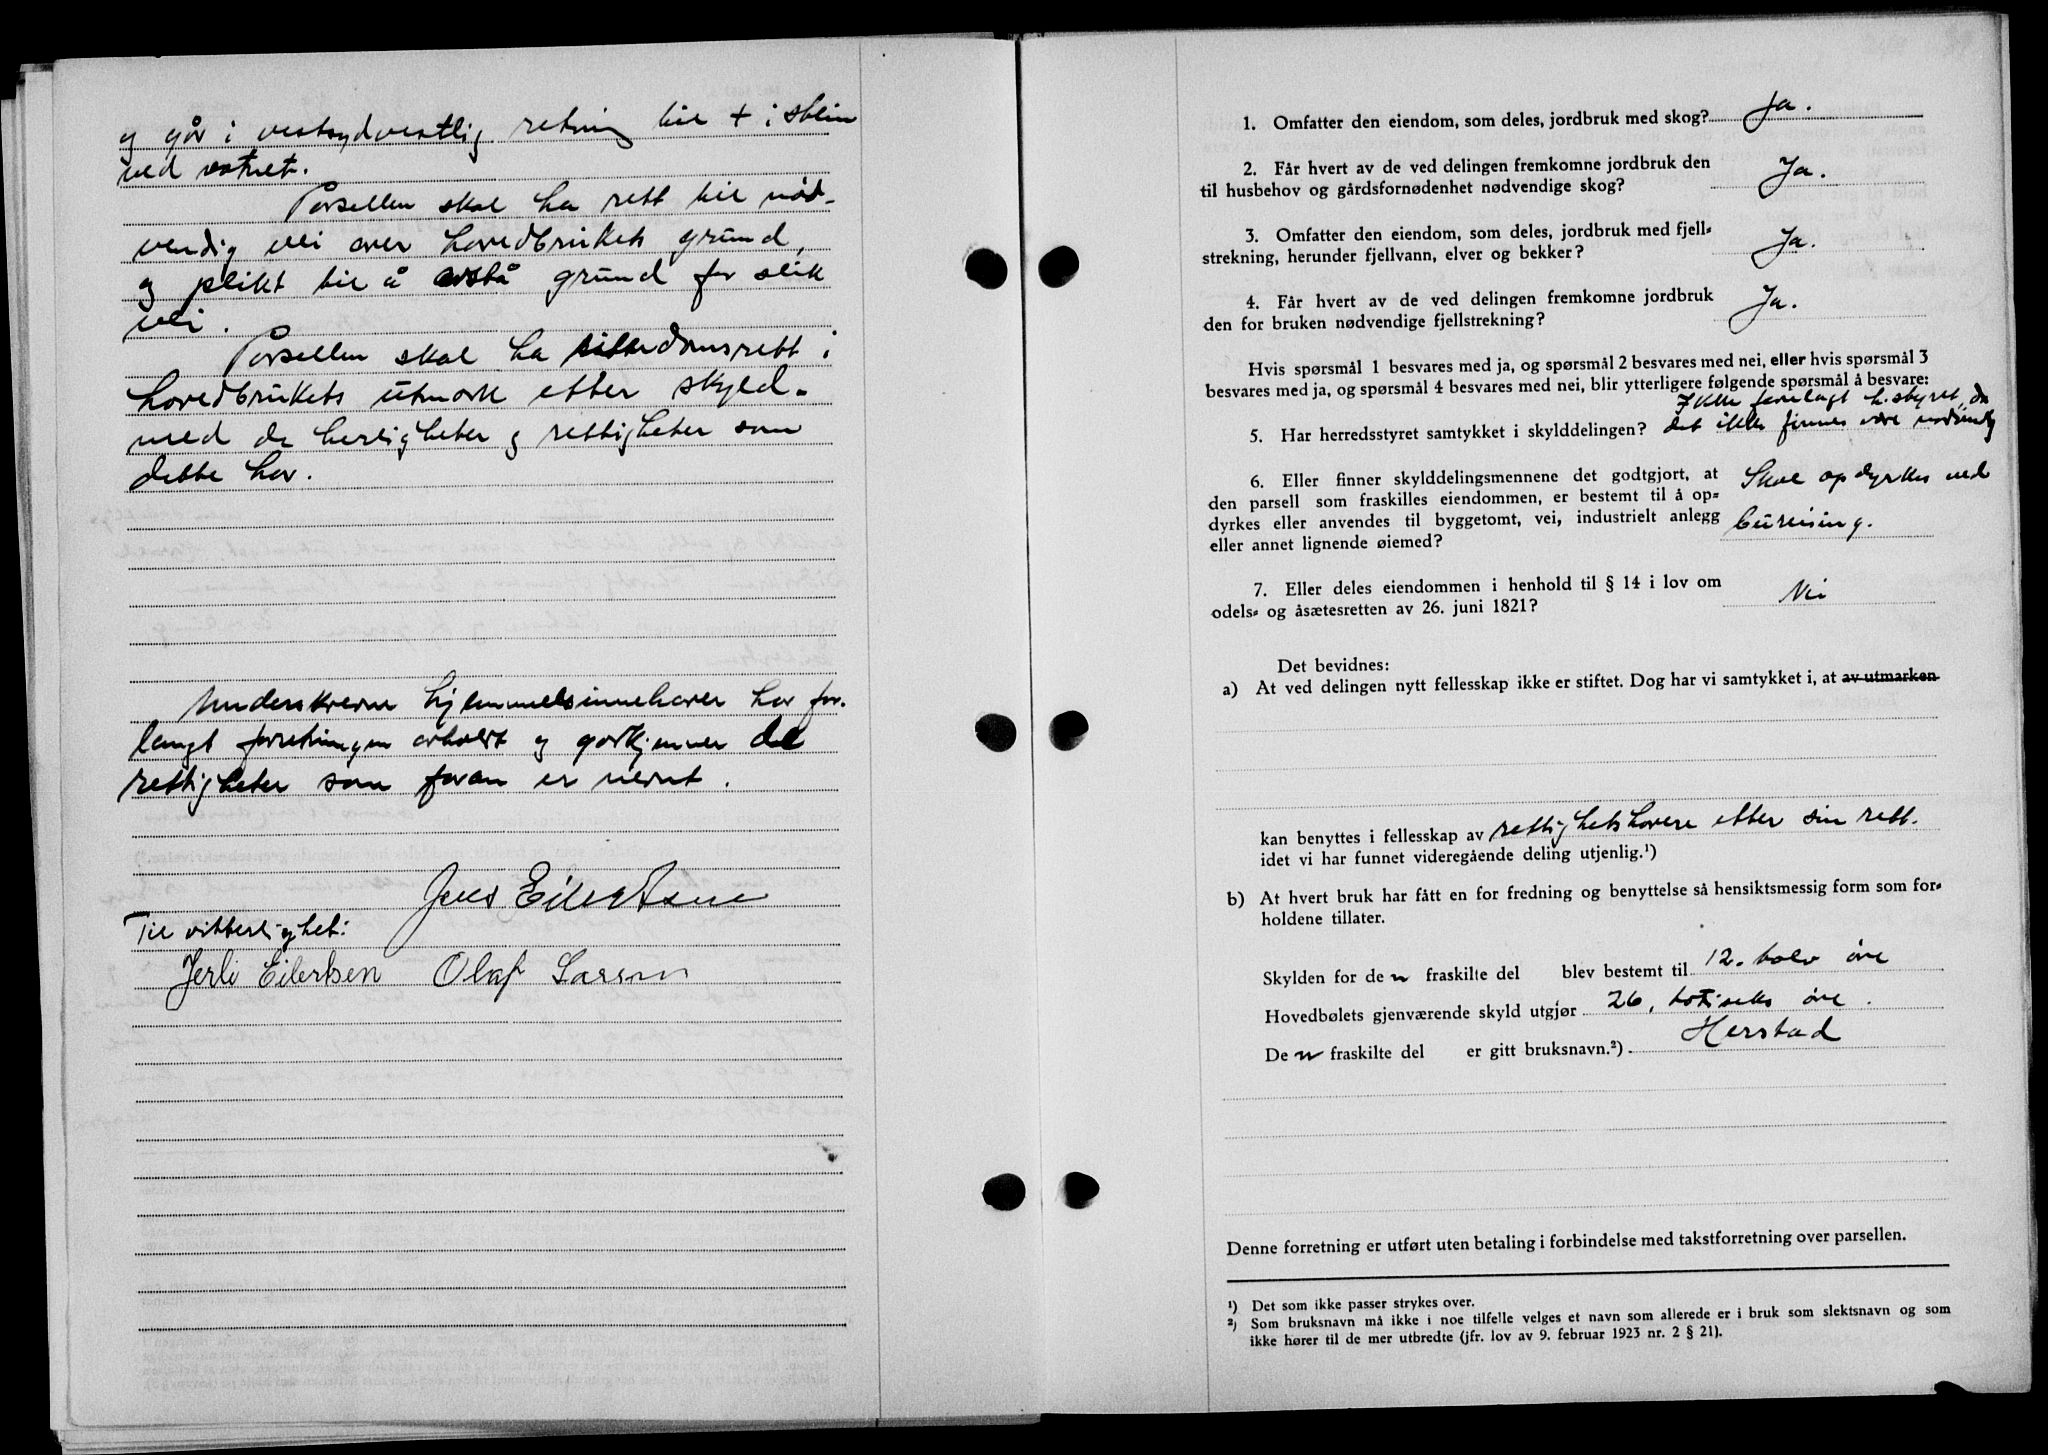 og går i vestsydvestlig retning til + i stein
ved vatnet.
Parsellen skal ha rett til nød-
vendig vei over hovedbrukets grund,
og plikt til å avstå grund for slik
vei.
Parsellen skal ha rådomsrett i
hovedbrukets utmark etter skyld-
med de herligheter og rettigheter som
dette har.
Underskrevne hjemmelsinnehaver har for-
langt forretningen avholdt og godkjenner de
rettigheter som foran er nevnt.
Jens Eilertsen
Til vitterlighet:
Jerli Eilertsen Olaf Larsen
1. Omfatter den eiendom, som deles, jordbruk med skog? Ja.
2. Får hvert av de ved delingen fremkomne jordbruk den
til husbehov og gårdsfornødenhet nødvendige skog? Ja.
3. Omfatter den eiendom, som deles, jordbruk med fjell-
strekning, herunder fjellvann, elver og bekker? Ja.
4. Får hvert av de ved delingen fremkomne jordbruk
den for bruken nødvendige fjellstrekning? Ja.
Hvis spørsmål 1 besvares med ja, og spørsmål 2 besvares med nei, eller hvis spørsmål 3
besvares med ja, og spørsmål 4 besvares med nei, blir ytterligere følgende spørsmål å besvare:
Ikke forelagt h.styret, da
5. Har herredsstyret samtykket i skylddelingen? det ikke finnes være nødvendig
6. Eller finner skylddelingsmennene det godtgjort, at
den parsell som fraskilles eiendommen, er bestemt til å op-
dyrkes eller anvendes til byggetomt, vei, industrielt anlegg
eller annet lignende øiemed?
Skal opdyrkes ved
bureising.
7. Eller deles eiendommen i henhold til § 14 i lov om
odels- og åsætesretten av 26. juni 1821? Nei
Det bevidnes:
a) At ved delingen nytt fellesskap ikke er stiftet. Dog har vi samtykket i, at av utmarken
kan benyttes i fellesskap av rettighetshavere etter sin rett.
idet vi har funnet videregående deling utjenlig.¹)
b) At hvert bruk har fått en for fredning og benyttelse så hensiktsmessig form som for-
holdene tillater.
Skylden for den fraskilte del blev bestemt til 12. tolv øre
Hovedbølets gjenværende skyld utgjør 26, totiseks øre.
Den fraskilte del er gitt bruksnavn.²) Herstad
Denne forretning er utført uten betaling i forbindelse med takstforretning over parsellen.
¹) Det som ikke passer strykes over.
²) Som bruksnavn må ikke i noe tilfelle velges et navn som allerede er i bruk som slektsnavn og som
ikke hører til de mer utbredte (jfr. lov av 9. februar 1923 nr. 2 § 21).